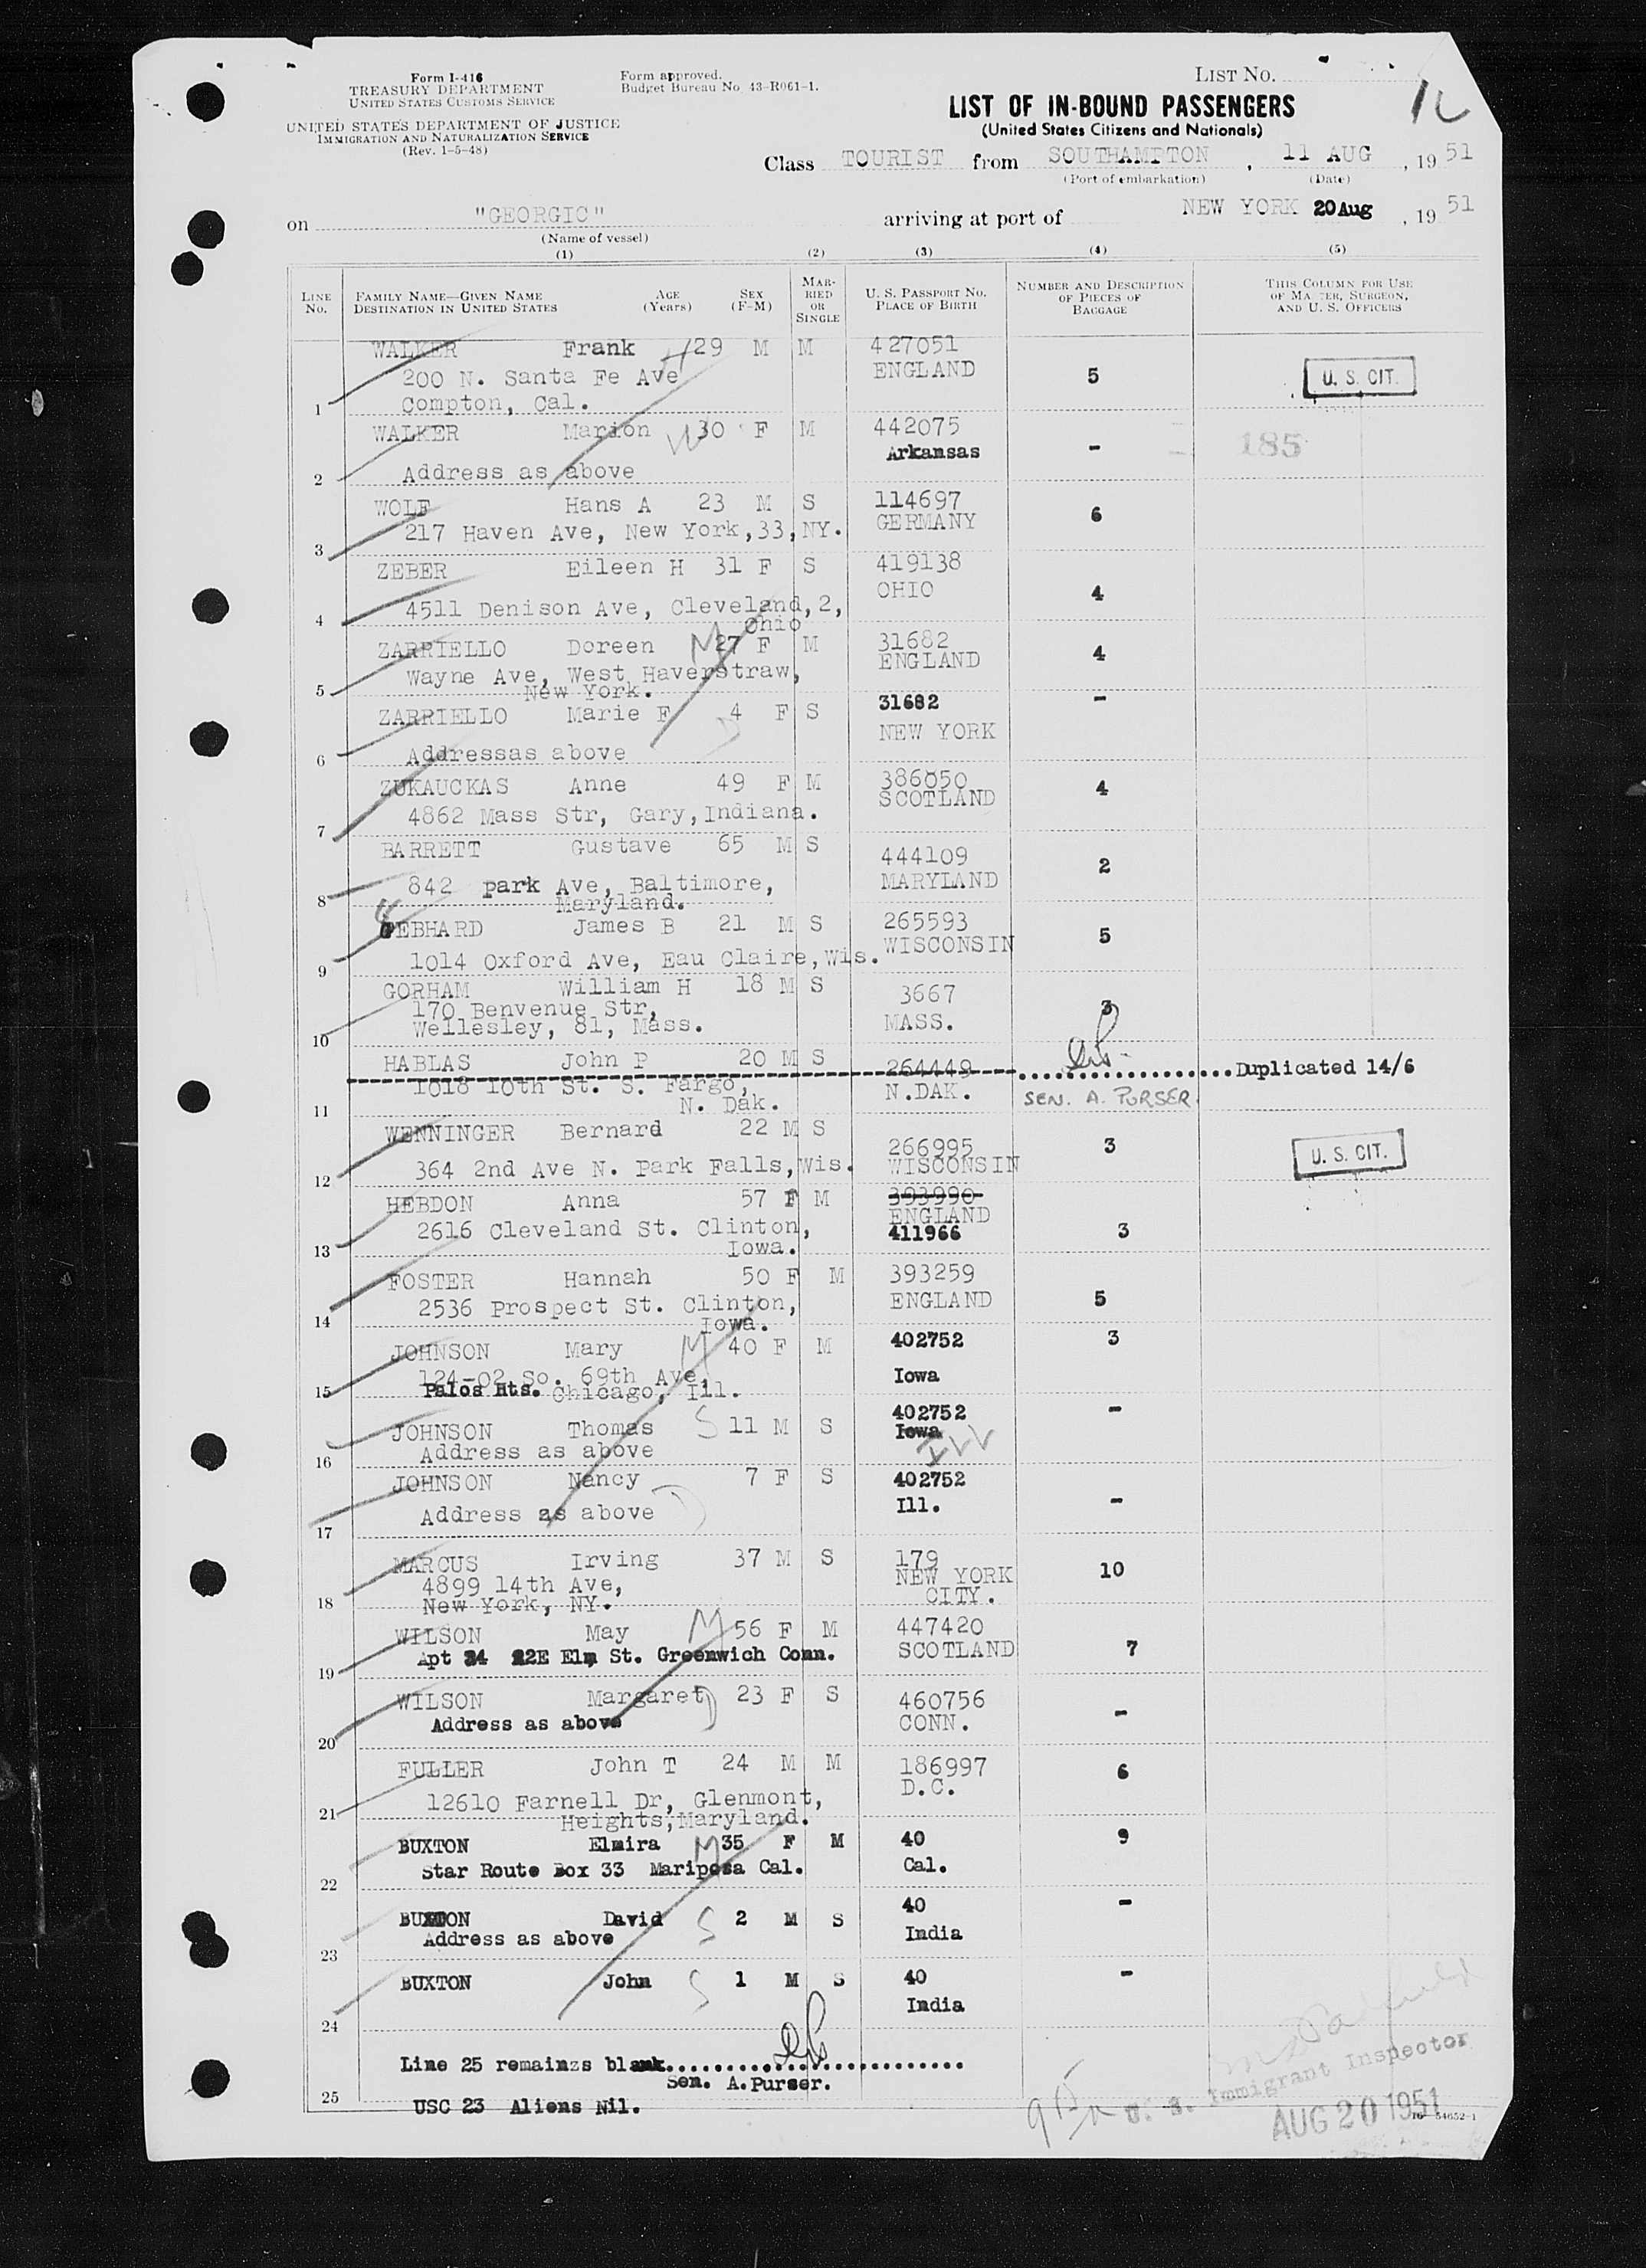 Form I-416
TREASURY DEPARTMENT
UNITED STATES CUSTOMS SERVICE
UNITED STATES DEPARTMENT OF JUSTICE
IMMIGRATION AND NATURALIZATION SERVICE
(Rev. 1-5-48)
Form approved.
Budget Bureau No. 43-R061-1.
LIST NO.
LIST OF IN-BOUND PASSENGERS
(United States Citizens and Nationals)
Class TOURIST from SOUTHAMPTON, 11 AUG, 1951
(Port of embarkation) (Date)
on "GEORGIC" arriving at port of NEW YORK 20 Aug, 1951
(Name of vessel)
(1) (2) (3) (4) (5)
LINE NO. FAMILY NAME—GIVEN NAME DESTINATION IN UNITED STATES AGE (Years) SEX (F-M) MARRIED OR SINGLE U. S. PASSPORT NO. PLACE OF BIRTH NUMBER AND DESCRIPTION OF PIECES OF BAGGAGE THIS COLUMN FOR USE OF MASTER, SURGEON, AND U. S. OFFICERS
WALKER Frank H 29 M M 427051
200 N. Santa Fe Ave ENGLAND 5 U. S. CIT.
1 Compton, Cal.
WALKER Marion W 30 F M 442075
Arkansas - 185
2 Address as above
WOLF Hans A 23 M S 114697
GERMANY 6
3 217 Haven Ave, New York,33,NY.
ZEBER Eileen H 31 F S 419138
OHIO 4
4 4511 Denison Ave, Cleveland,2,
Ohio
ZARRIELLO Doreen M 27 F M 31682
Wayne Ave, West Haverstraw, ENGLAND 4
5 New York.
ZARRIELLO Marie F D 4 F S 31682 -
NEW YORK
6 Addressas above
ZUKAUCKAS Anne 49 F M 386050
SCOTLAND 4
7 4862 Mass Str, Gary,Indiana.
BARRETT Gustave 65 M S 444109 2
842 park Ave, Baltimore, MARYLAND
8 Maryland.
GEBHARD James B 21 M S 265593
WISCONSIN 5
9 1014 Oxford Ave, Eau Claire,Wis.
GORHAM William H 18 M S 3667 3
170 Benvenue Str,
10 Wellesley, 81, Mass. MASS.
HABLAS John P 20 M S 264449 Duplicated 14/6
1018 10th St. S. Fargo, N.DAK. SEN. A. PURSER.
11 N. Dak.
WENNINGER Bernard 22 M S 266995 3
12 364 2nd Ave N. Park Falls,Wis. WISCONSIN U. S. CIT.
HEBDON Anna 57 F M 393990
ENGLAND
2616 Cleveland St. Clinton, 411966 3
13 Iowa.
FOSTER Hannah 50 F M 393259
2536 Prospect St. Clinton, ENGLAND 5
14 Iowa.
JOHNSON Mary M 40 F M 402752 3
124-02 So. 69th Ave, Iowa
15 Palos Hts. Chicago, Ill.
JOHNSON Thomas S 11 M S 402752 -
Iowa
16 Address as above ILL
JOHNSON Nancy D 7 F S 402752
17 Address as above Ill. -
MARCUS Irving 37 M S 179 10
4899 14th Ave, NEW YORK
18 New York, NY. CITY.
WILSON May M 56 F M 447420
19 Apt 22E Elm St. Greenwich Conn. SCOTLAND 7
WILSON Margaret D 23 F S 460756
20 Address as above CONN. -
FULLER John T 24 M M 186997 6
12610 Farnell Dr, Glenmont, D.C.
21 Heights,Maryland.
BUXTON Elmira M 35 F M 40 9
22 Star Route Box 33 Mariposa Cal. Cal.
BUXTON David S 2 M S 40 -
23 Address as above India
BUXTON John S 1 M S 40 -
24 India
Line 25 remainzs blank........................
Sen. A.Purser.
25 USC 23 Aliens Nil.
U. S. Immigrant Inspector
AUG 20 1951
16—54652-1